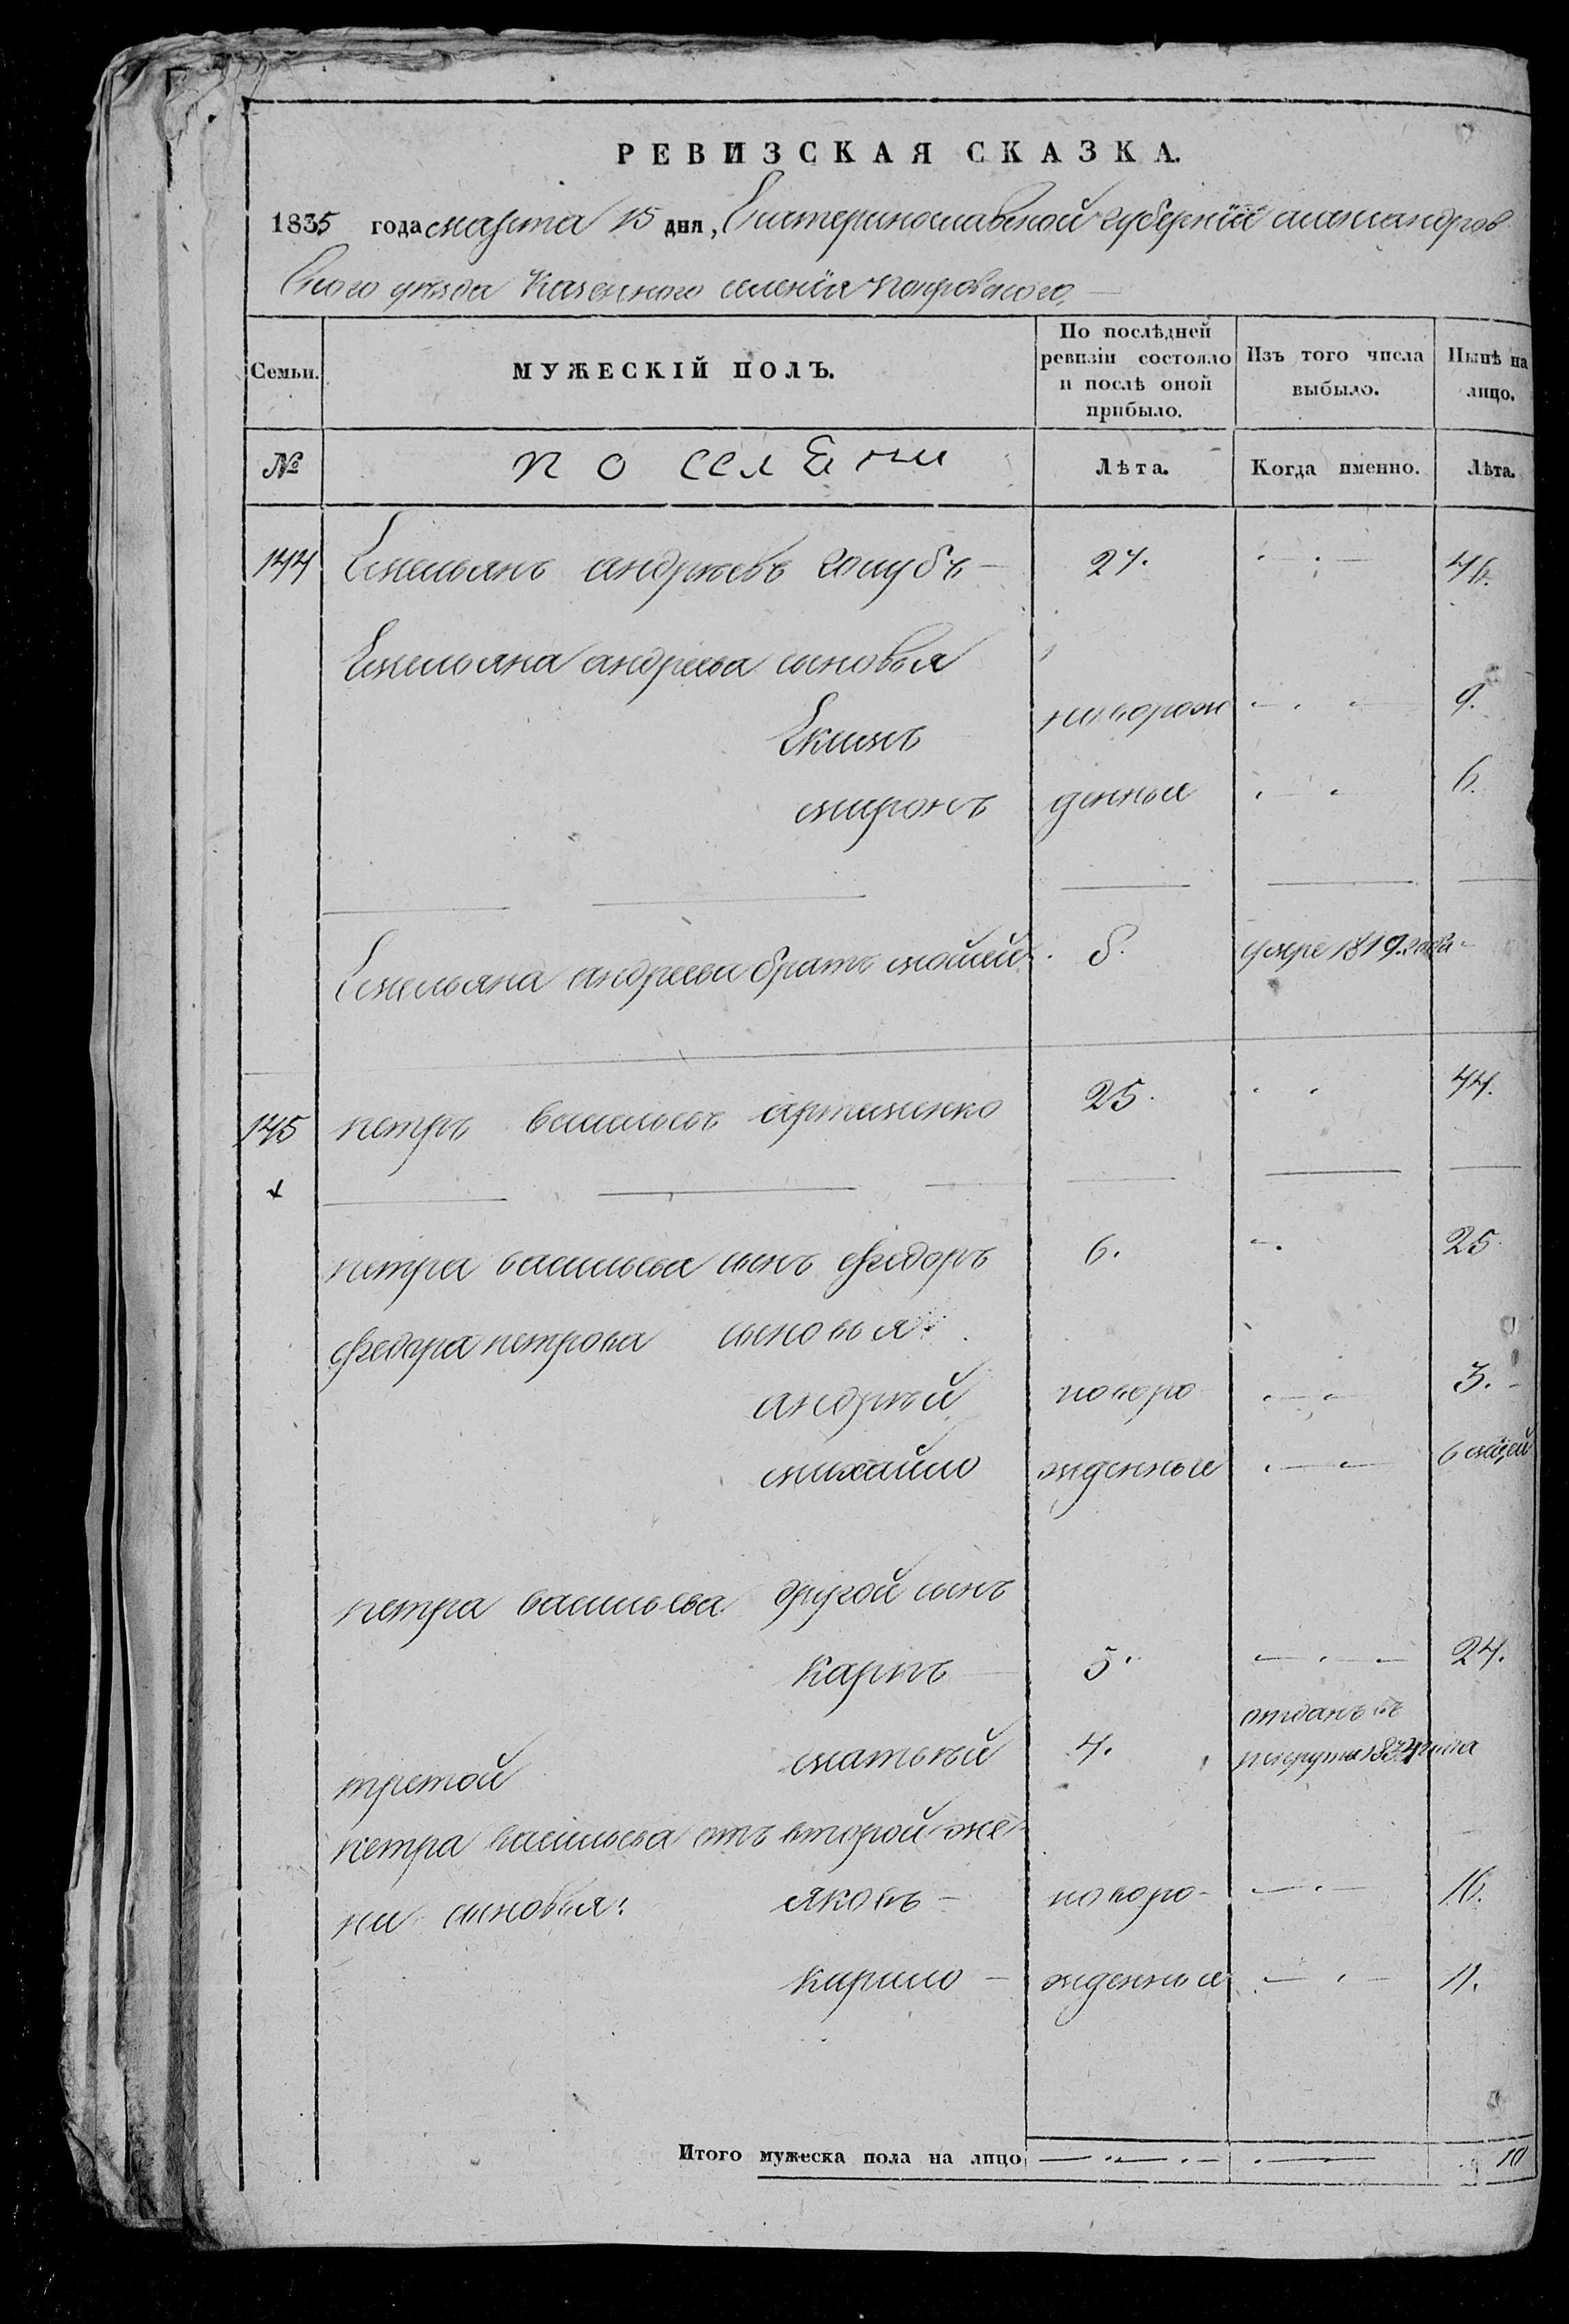 РЕВИЗСКАЯ СКАЗКА.
1835 года марта 15 дня, Екатеринославской губернїи александров
ского уезда Казенного селенїя Покровского
Семьи. МУЖЕСКІЙ ПОЛЪ. По послѣдней ревизіи состояло и послѣ оной прибыло. Изъ того числа выбыло. Нынѣ на лицо.
№ поселяни Лѣта. Когда именно. Лѣта.
144 Емельянъ андреевъ голубъ 27. 46.
Емельяна андреева сыновья
Екимъ новорож 9.
миронъ денные 6.
Емельяна андреева братъ мойсей 8. умре 1819 года
145 петръ васильевъ артименко 25. 44.
петра васильева сынъ федоръ 6. 25
федора петрова сыновья
андрей новоро 3.
михайло жденные 6 мцей
петра васильева другой сынъ
карпъ 5. 24.
отданъ въ
третой матвей 4. рекруты 1834 года
петра васильева отъ второй же
ни сыновья: яковъ новоро- 16.
кирило жденные 11.
Итого мужеска пола на лицо 10